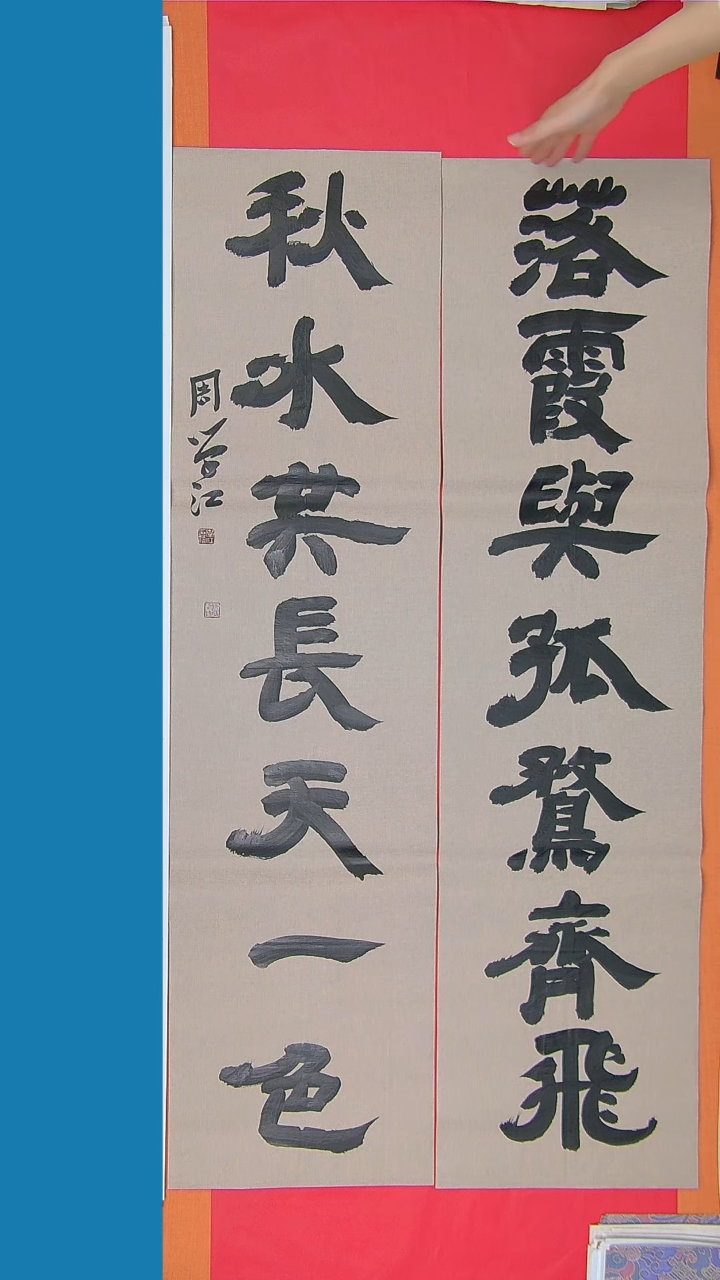 落霞與孤鶩齊飛
秋水共長天一色
周学江